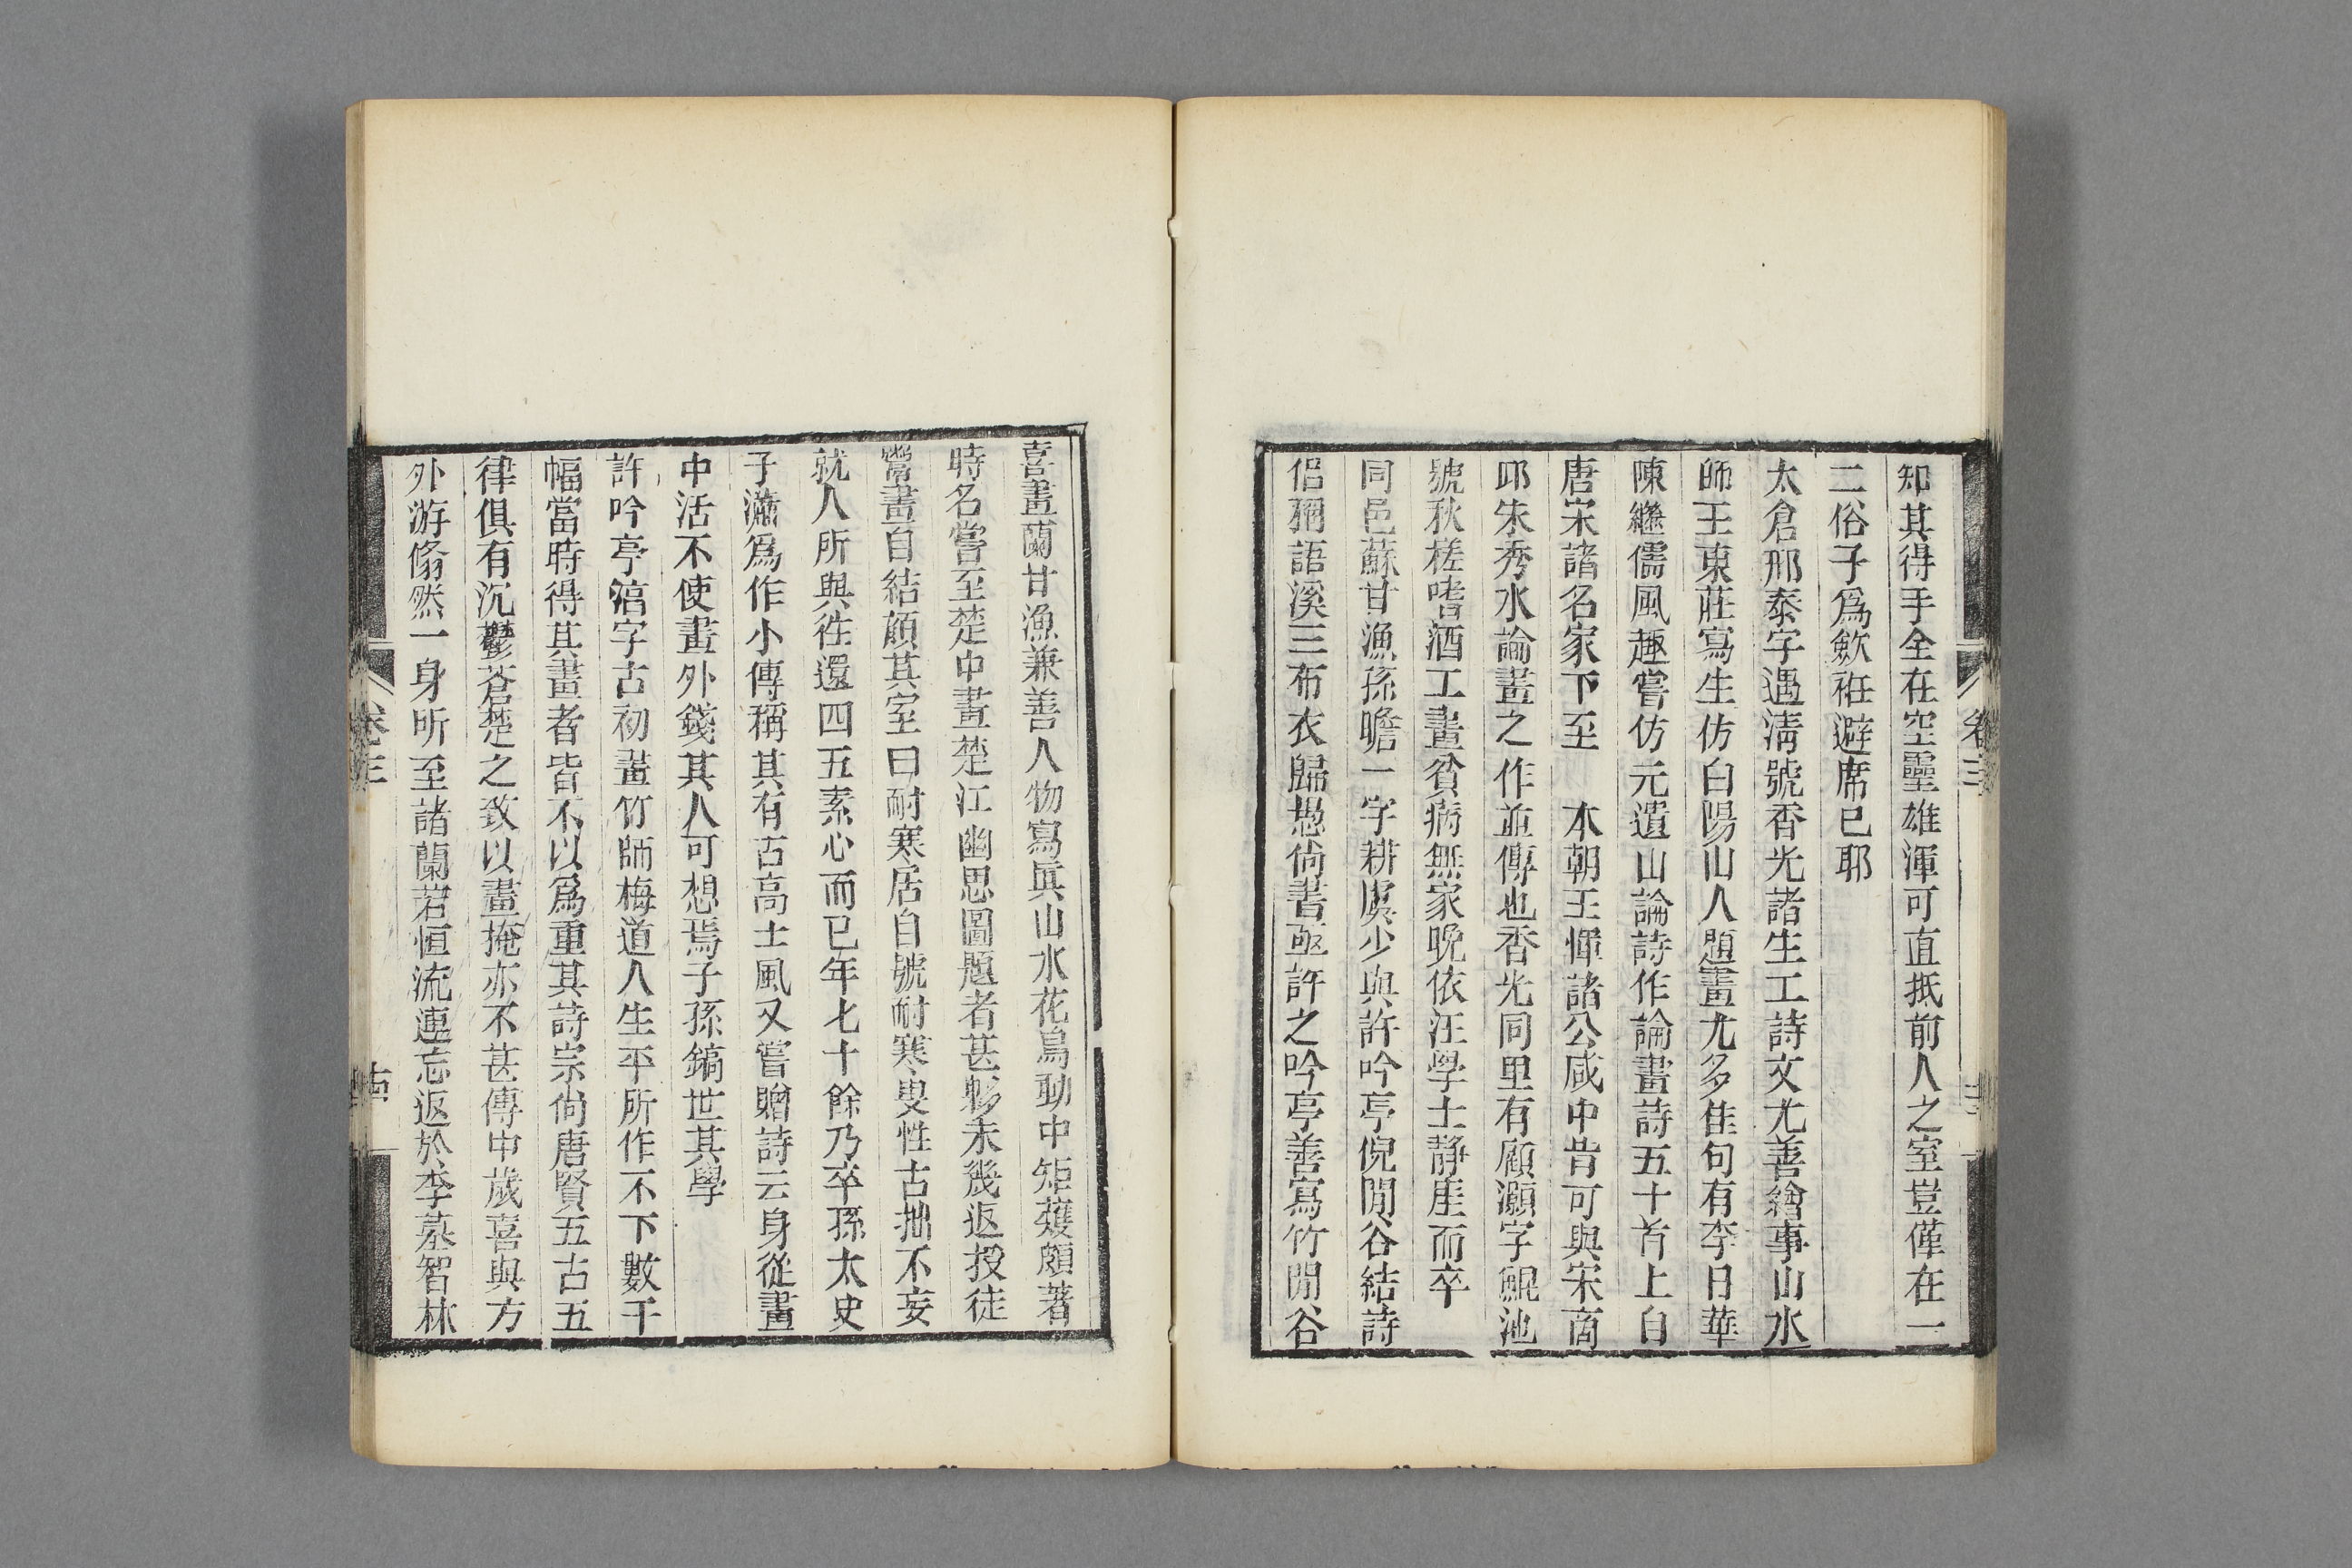 知其得手全在空靈雄渾可直抵前人之室豈僅在一
二俗子爲歛袵避席已耶
太倉那泰字遇淸號香光諸生工詩文尤善繪事山水
師王東莊寫生仿白陽山人題畫尤多佳句有李日華
陳繼儒風趣嘗仿元遺山論詩作論畫詩五十首上自
唐宋諸名家下至　本朝王惲諸公咸中肯可與宋商
邱朱秀水論畫之作並傳也香光同里有顧灝字鯤池
號秋槎嗜酒工畫貧病無家晚依汪學士靜厓而卒
同邑蘇甘漁孫瞻一字耕虞少與許吟亭倪閒谷結詩
侶稱語溪三布衣歸愚尙書亟許之吟亭善寫竹閒谷
喜畫蘭甘漁兼善人物寫眞山水花鳥動中矩蠖頗著
時名嘗至楚中畫楚江幽思圖題者甚夥未幾返授徒
鬻畫自給顏其室曰耐寒居自號耐寒叟性古拙不妄
就人所與往還四五素心而已年七十餘乃卒孫太史
子瀟爲作小傳稱其有古高士風又嘗贈詩云身從畫
中活不使畫外錢其人可想焉子孫鎬世其學
許吟亭湻字古初畫竹師梅道人生平所作不下數千
幅當時得其畫者皆不以爲重其詩宗尙唐賢五古五
律俱有沉鬱蒼楚之致以畫掩亦不甚傳中歲喜與方
外游翛然一身所至諸蘭若恒流連忘返於李墓智林
卷三